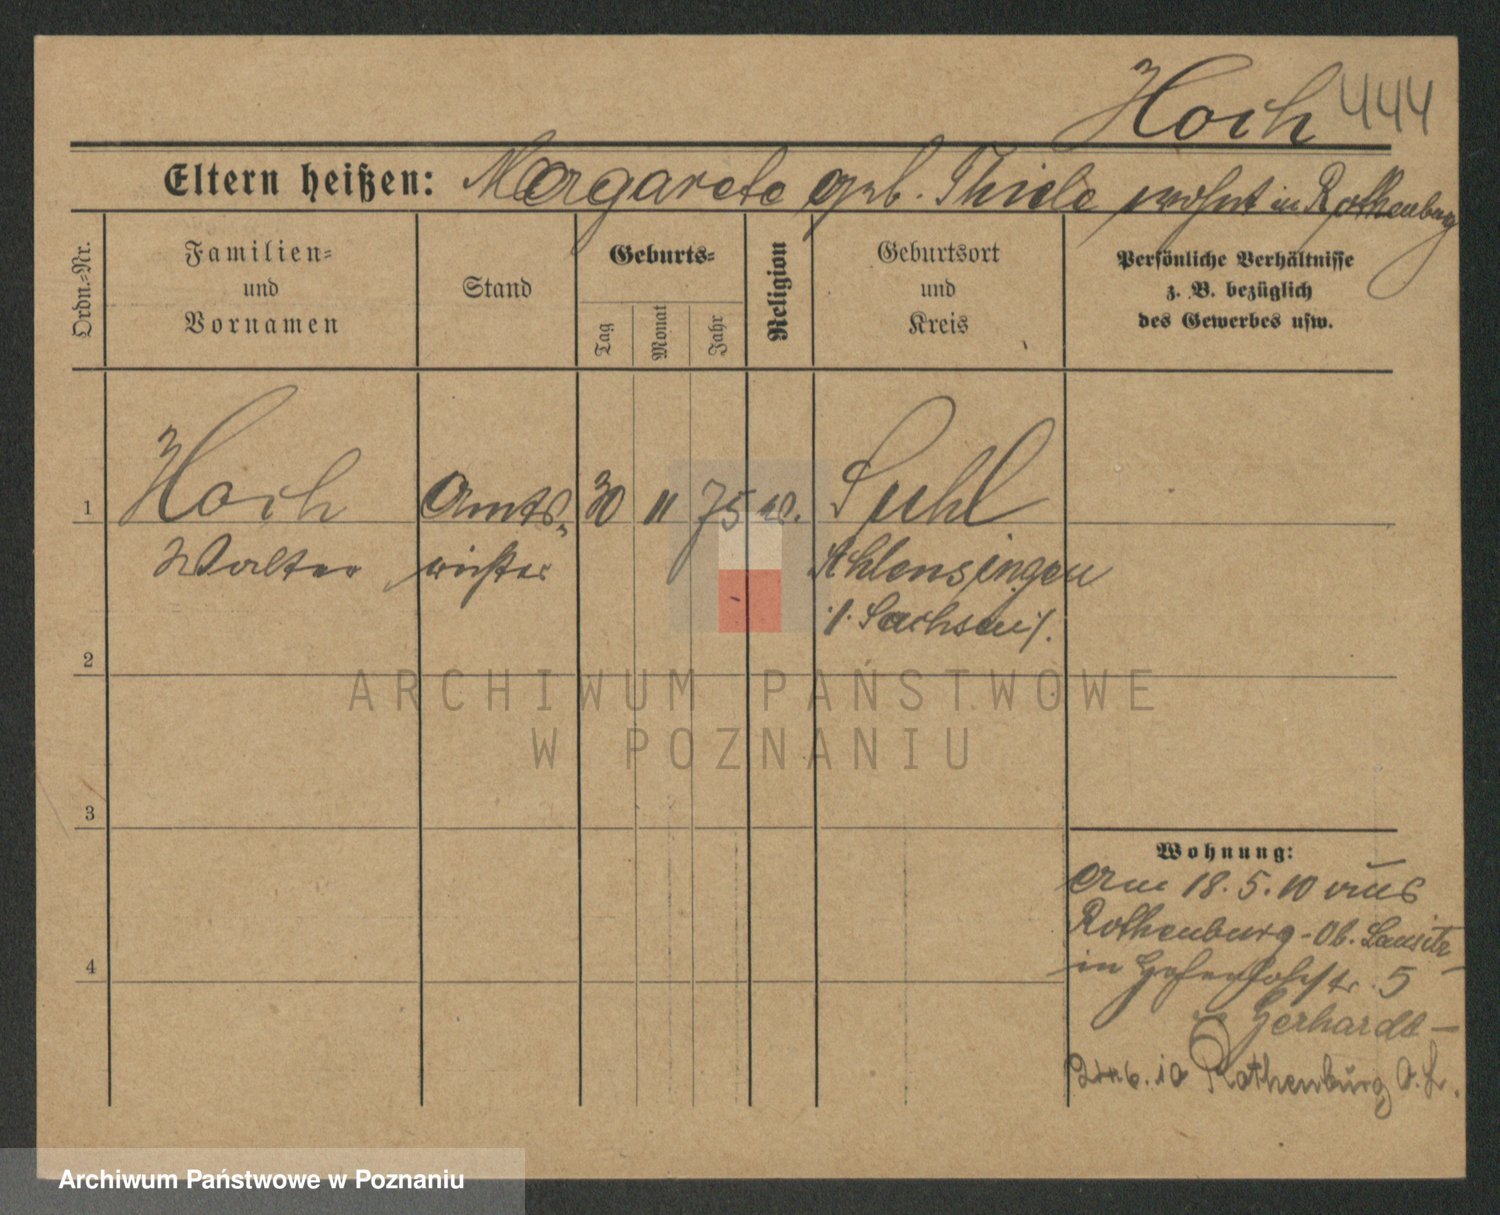 Hoch 444
Eltern heißen: Margarete geb. Thiele wohnt in Rothenburg
Ordn.-Nr.
Familien-
und
Vornamen
Stand
Geburts-
Tag
Monat
Jahr
Religion
Geburtsort
und
Kreis
Persönliche Verhältnisse
z. B. bezüglich
des Gewerbes usw.
1 Hoch Amts- 30 11 75 Suhl
Walter richter
./. Sachsen ./.
2
ARCHIWUM PAŃSTWOWE
W POZNANIU
3
Wohnung:
Am 18.5.10 aus
Rothenburg-Ob. Lausitz
4
in 5
Gerhardt-
10 Rothenburg O.L.
Archiwum Państwowe w Poznaniu